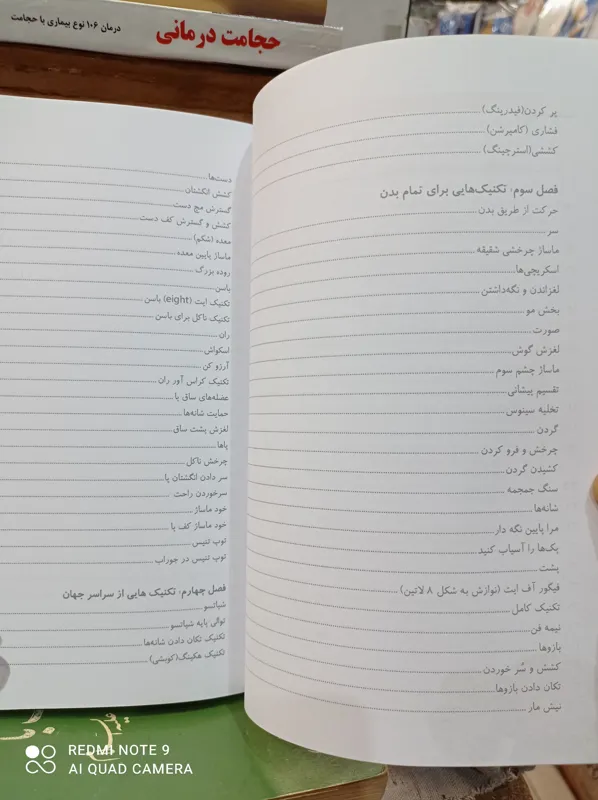 حجامت درمانی
درمان ۱۰۶ نوع بیماری با حجامت
پر کردن(فیدرینگ)
فشاری (کامپرشن)
کششی(استرچینگ)
فصل سوم: تکنیک‌هایی برای تمام بدن
حرکت از طریق بدن
سر
ماساژ چرخشی شقیقه
اسکریچی‌ها
لغزاندن و نگه‌داشتن
بخش مو
صورت
لغزش گوش
ماساژ چشم سوم
تقسیم پیشانی
تخلیه سینوس
گردن
چرخش و فرو کردن
کشیدن گردن
سنگ جمجمه
شانه‌ها
مرا پایین نگه دار
یک‌ها را آسیاب کنید
پشت
فیگور آف ایت (نوازش به شکل ۸ لاتین)
تکنیک کامل
نیمه فن
بازوها
کشش و سُر خوردن
تکان دادن بازوها
نیش مار
دست‌ها
کشش انگشتان
گسترش مچ دست
کشش و گسترش کف دست
معده (شکم)
ماساژ پایین معده
روده بزرگ
باسن
تکنیک ایت (eight) باسن
تکنیک ناکل برای باسن
ران
اسکواش
آرزو کن
تکنیک کراس آور ران
عضله‌های ساق پا
حمایت شانه‌ها
لغزش پشت ساق
پاها
چرخش ناکل
سر دادن انگشتان پا
سرخوردن راحت
خود ماساژ
خود ماساژ کف پا
توپ تنیس
توپ تنیس در جوراب
فصل چهارم: تکنیک هایی از سراسر جهان
شیاتسو
توالی پایه شیاتسو
تکنیک تکان دادن شانه‌ها
تکنیک هکینگ(کوبشی)
REDMI NOTE 9
AI QUAD CAMERA